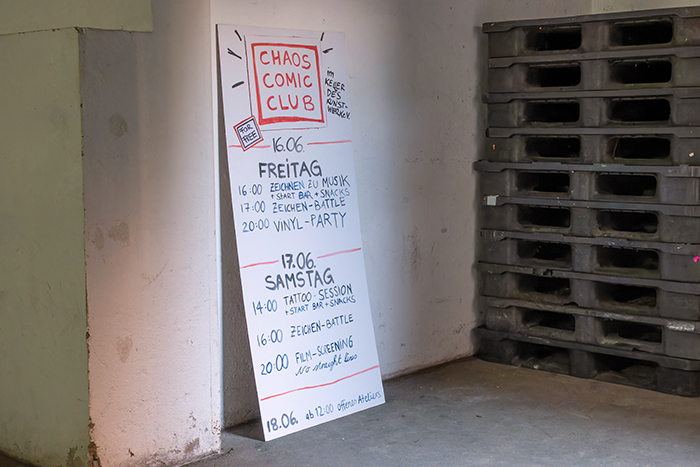 CHAOS
COMIC
CLUB
IM
KELLER
DES
KUNST-
WBRUCK
FOR
FREE
16.06.
FREITAG
16:00 ZEICHNEN ZU MUSIK
+ START BAR + SNACKS
17:00 ZEICHEN-BATTLE
20:00 VINYL-PARTY
17.06.
SAMSTAG
14:00 TATTOO-SESSION
+ START BAR + SNACKS
16:00 ZEICHEN-BATTLE
20:00 FILM-SCREENING
No straight lines
18.06. ab 12:00 offenen Ateliers